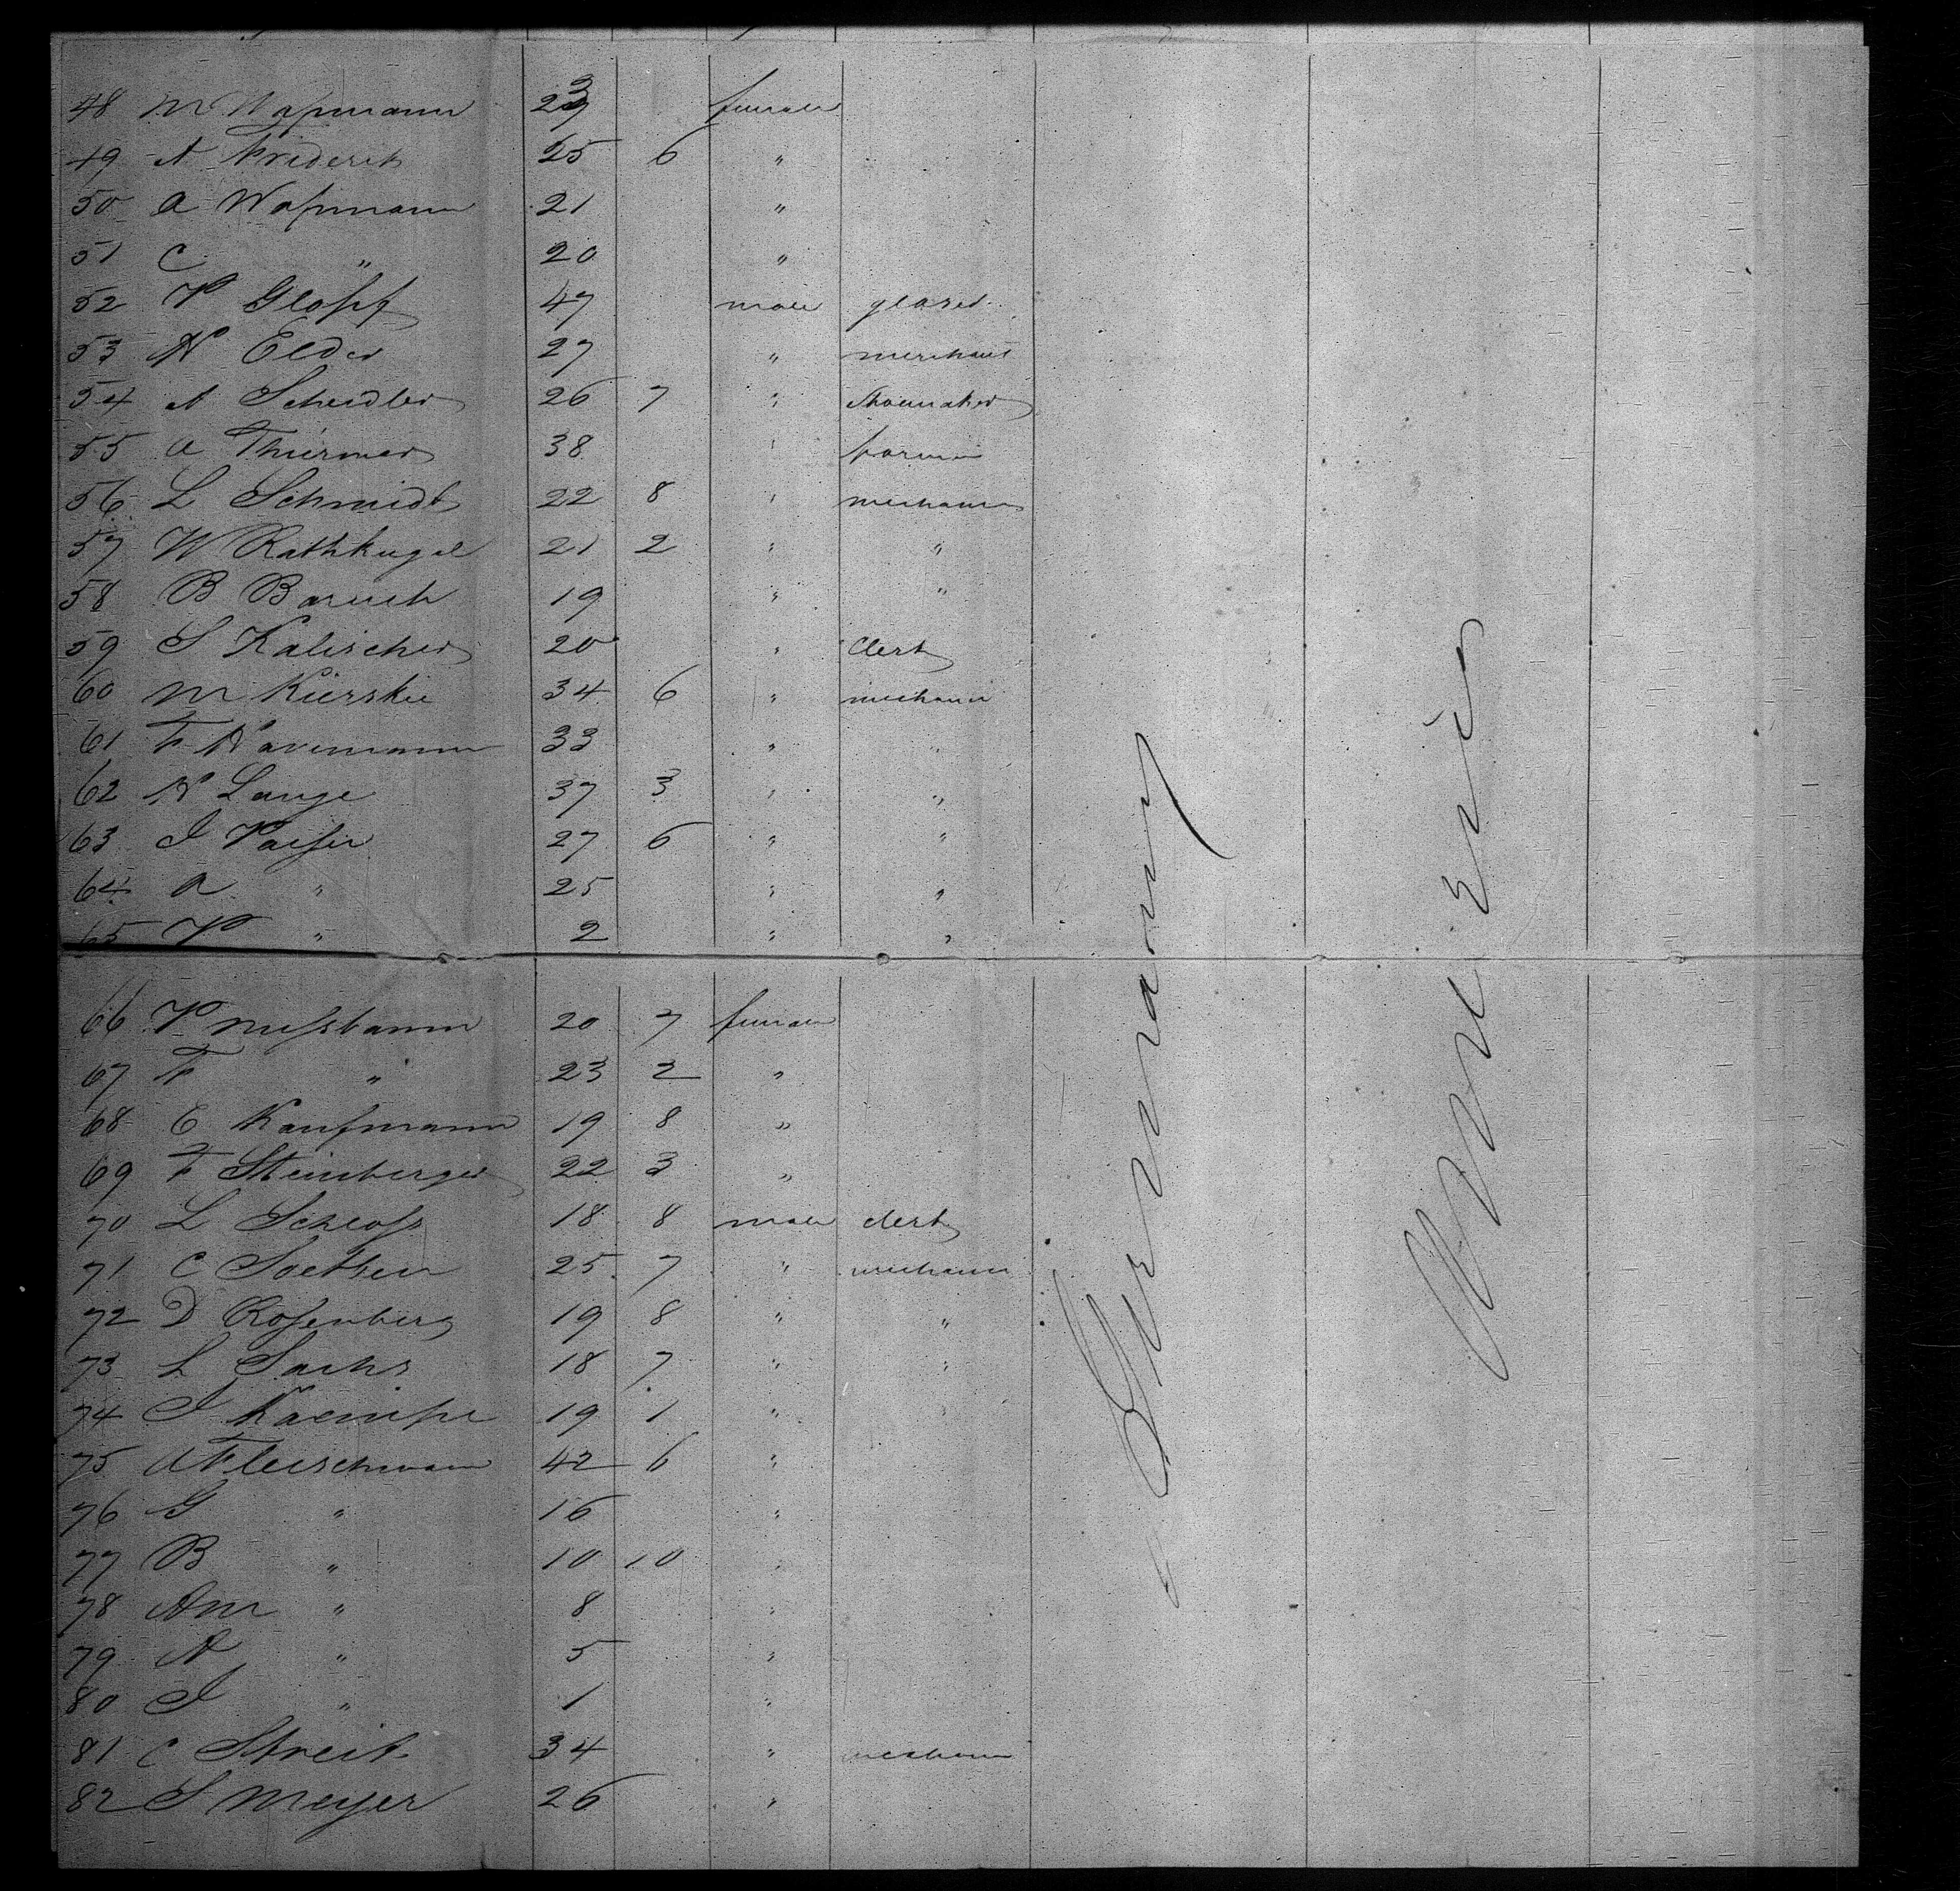 48 M Wapmann 23 female
49 A Friderich 25 6 "
50 A Wapmann 21 "
51 C " 20 "
52 P Glossf 47 male glaser
53 H Elder 27 " merchant
54 A Scheidler 26 7 " Shoemaker
55 A Thürmer 38 " farmer
56 L Schmidt 22 8 " mechanic
57 W Rathkugel 21 2 " "
58 B Baruch 19 " "
59 S Kalischer 20 " Clerk
60 M Kierskie 34 6 " mechanic
61 F Havemann 33 " "
62 H Lange 37 3 " "
63 J Paeser 27 6 " "
64 A " 25 " "
65 P " 2 " "
66 P Nussbaum 20 7 female
67 F " 23 2 "
68 E Kaufmann 19 8 "
69 F Steinberger 22 3 "
70 L Schloss 18 8 male clerk
71 C Soetsen 25 7 " mechanic
72 D Rosenberg 19 8 " "
73 L Sachs 18 7 " "
74 J Kaempe 19 1 "
75 A Fleischmann 42 6 "
76 G " 16 "
77 B " 10 10 "
78 Am " 8 "
79 A " 5 "
80 J " 1 "
81 C Streit 34 " mechanic
82 S Meyer 26 "
Germany
America